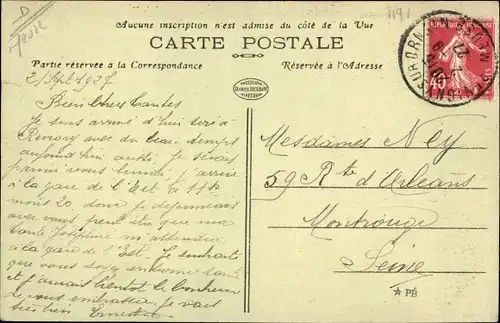 D
Meuse
Aucune inscription n'est admise du côté de la Vue
CARTE POSTALE
Partie réservée à la Correspondance
Réservée à l'Adresse
1927
Bien chères Tantes
Je suis arrivé d'hui soir à
Revigny avec du beau temps
aujourd'hui aussi. Je
vous lundi. J'arrive
à la gare de l'Est à 11h
moins 20 donc je
avec vous peut être que ma
tante Joséphine m'attendra
à la gare de l'Est. Je souhaite
que vous soyez en bonne santé
et j'aurai bientôt le bonheur
de vous embrasser. Je vais
très bien Ernest
Mesdames Ney
59 Rte d'Orléans
Montrouge
Seine
PB